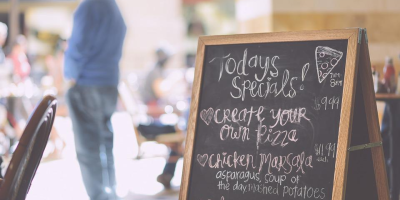 Today's
Specials!
$9.99
Create your
own Pizza
Chicken Marsala
asparagus, soup of
the day, mashed potatoes